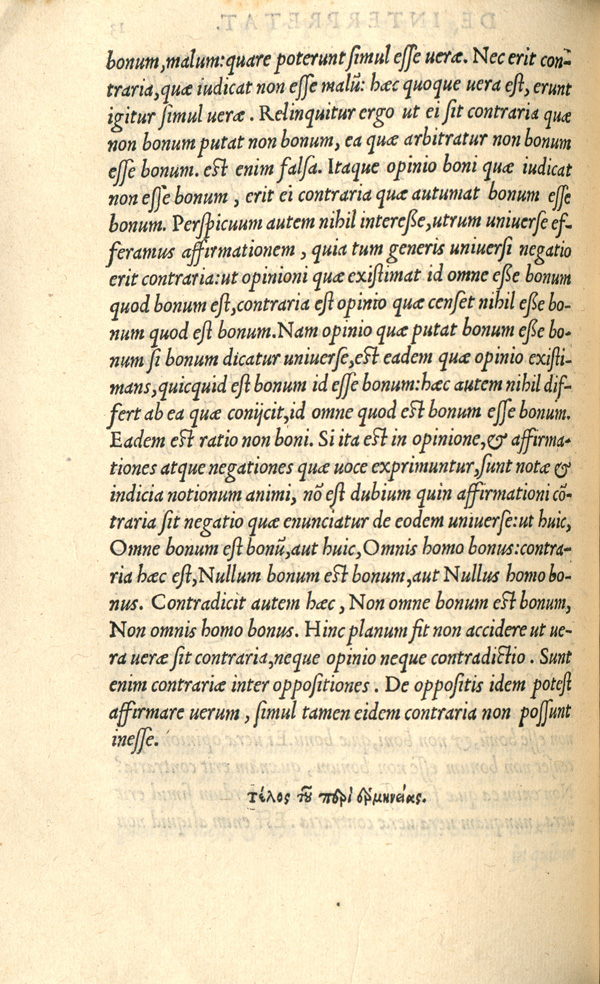 bonum, malum: quare poterunt simul esse ueræ. Nec erit con-
traria, quæ iudicat non esse malũ: hæc quoque uera est, erunt
igitur simul ueræ. Relinquitur ergo ut ei sit contraria quæ
non bonum putat non bonum, ea quæ arbitratur non bonum
esse bonum. est enim falsa. Itaque opinio boni quæ iudicat
non esse bonum, erit ei contraria quæ autumat bonum esse
bonum. Perspicuum autem nihil interesse, utrum uniuerse ef-
feramus affirmationem, quia tum generis uniuersi negatio
erit contraria: ut opinioni quæ existimat id omne esse bonum
quod bonum est, contraria est opinio quæ censet nihil esse bo-
num quod est bonum. Nam opinio quæ putat bonum esse bo-
num si bonum dicatur uniuerse, est eadem quæ opinio existi-
mans, quicquid est bonum id esse bonum: hæc autem nihil dif-
fert ab ea quæ conijcit, id omne quod est bonum esse bonum.
Eadem est ratio non boni. Si ita est in opinione, & affirma-
tiones atque negationes quæ uoce exprimuntur, sunt notæ &
indicia notionum animi, nõ est dubium quin affirmationi cõ-
traria sit negatio quæ enunciatur de eodem uniuerse: ut huic,
Omne bonum est bonũ, aut huic, Omnis homo bonus: contra-
ria hæc est, Nullum bonum est bonum, aut Nullus homo bo-
nus. Contradicit autem hæc, Non omne bonum est bonum,
Non omnis homo bonus. Hinc planum fit non accidere ut ue-
ra ueræ sit contraria, neque opinio neque contradictio. Sunt
enim contrariæ inter oppositiones. De oppositis idem potest
affirmare uerum, simul tamen eidem contraria non possunt
inesse.
Τέλος τοῦ περὶ ἑρμηνείας.